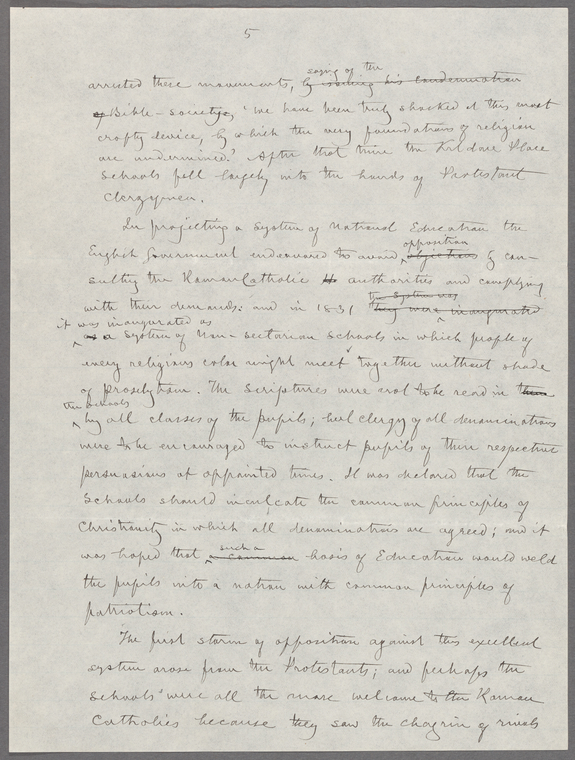 5
saying of the
arrested these movements, by issuing his condemnation
of Bible-society, "We have been truly shocked at this most
crafty device, by which the very foundations of religion
are undermined." After that time the Kildare Place
Schools fell largely into the hands of Protestant
Clergymen.
In projecting a system of National Education the
opposition
English Government endeavored to avoid objections by con-
sulting the Roman Catholic authorities and complying
the system was
with their demands: and in 1831 they were inaugurated
it was inaugurated as
as a system of Non-sectarian Schools in which people of
every religious color might meet together without shade
of proselytism. The Scriptures were not to be read in them
the schools
by all classes of the pupils; but clergy of all denominations
were to be encouraged to instruct pupils of their respective
persuasions at appointed times. It was declared that the
Schools should inculcate the common principles of
Christianity in which all denominations are agreed; and it
such a
was hoped that a common basis of Education would weld
the pupils into a nation with common principles of
patriotism.
The first storm of opposition against this excellent
system arose from the Protestants; and perhaps the
Schools were all the more welcome to the Roman
Catholics because they saw the chagrin of rivals